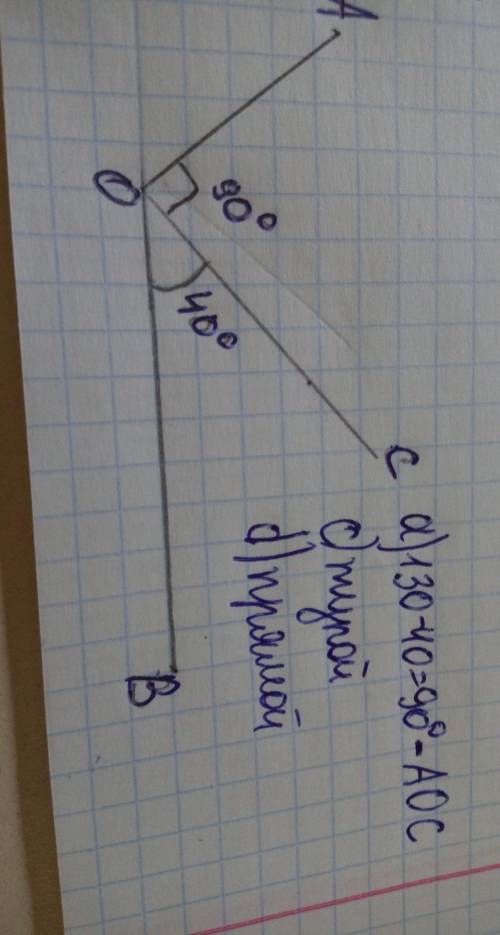 A
O
90°
40°
C
B
a) 130-40=90°-AOC
c) тупой
d) прямой